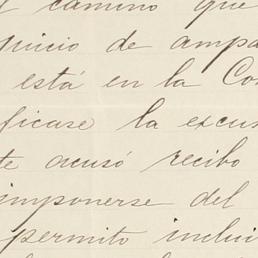 camino que
juicio de ampa
está en la Co
ficase la excus
te acusó recibo
imponerse del
permito inclui